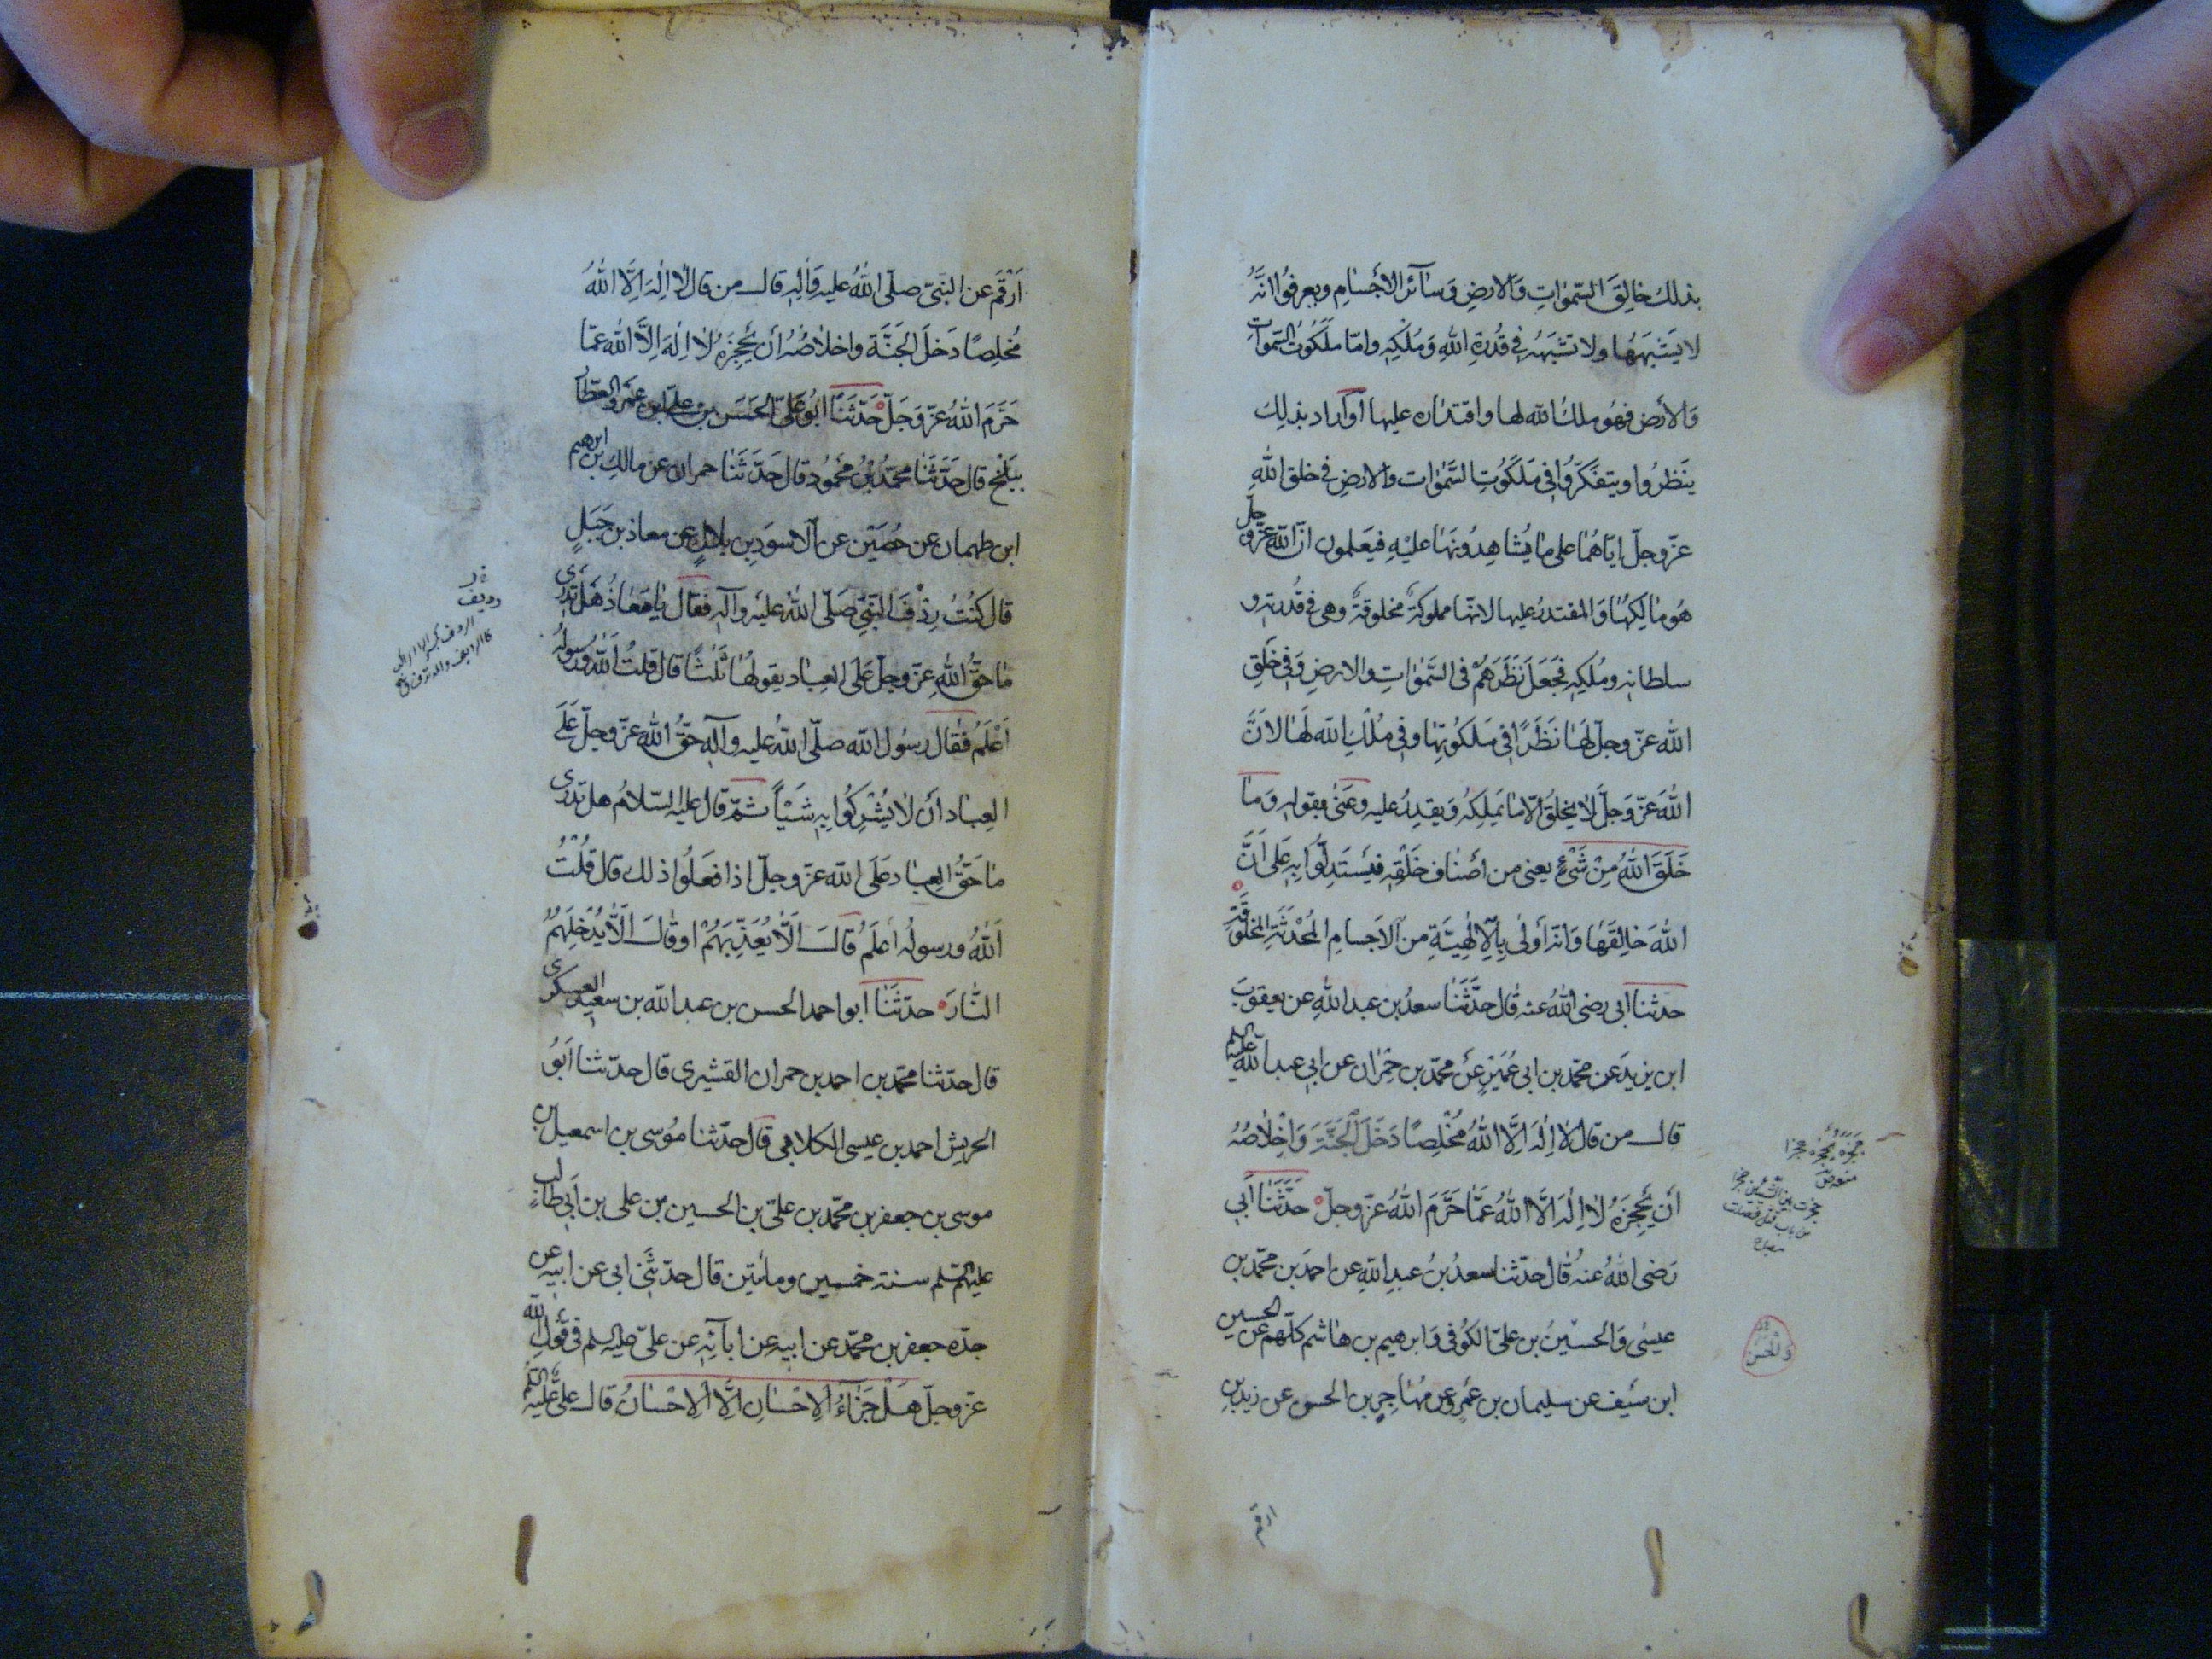 بذلك خالِقَ السّمٰواتِ وَالارضِ وَسآئر الأجسٰامِ ويعرفوُا انّهُ
لا يَشبَهُهٰا ولا تشبَهُه فى قُدرةِ اللّهِ وَمُلكِه وامّا ملكُوُت السّمٰواتِ
وَالأرض فهُو ملكُ اللّه لها واقتداره عليها اَوَ اراد بذلِك
ينَظرُوا ويتفكّروُا فى مَلكوُتِ السّمٰوٰات والارضِ فى خلق اللّهِ
عزّ وجلّ ايّاهُما على مٰا يُشاهِدُونَهٰا عليْهِ فيَعلمون انّ اللّه عزّ وجلّ
هُو مٰالِكهُا وَالمقتدرُ عليها لانّهٰا مملوكة مخلوقةٌ وهى فى قُدرته و
سلطانه ومُلكِه فجَعَلَ نَظَرَهُمْ فى السّمٰواتِ والارضِ وَفى خَلقِ
اللّه عزّ وجلّ لَهٰا نَظَرًا فى مَلكُوتِهٰا وفى مُلكِ اللّه لَهٰا لانّ
اللّهَ عزّ وَجلّ لا يخلقُ الّا مٰا يَملِكهُ وَيقدِرُ عليه وعَنىٰ بقولهِ وَمٰا
خَلَقَ اللّهُ مِنْ شَىْءٍ يعنى من أصنٰاف خَلْقِه فيَستَدِلّوُا بِه عَلى اَنَّ
اللّهَ خٰالِقُهٰا وَانّهُ أولى بِالاِلٰهِيّةِ من الاَجسٰامِ المُحْدَثَةِ المخلُوقَة
حدثنا ابى رضى اللّهُ عنه قٰال حدَّثَنٰا سعدُ بن عبد اللّهِ عن يعقوُب
ابن يزيدَ عن محمّد بن ابى عُمَيرٍ عَن محمّد بن حمْرٰان عن ابى عبد اللّه عليه السلم
قالـــ من قٰال لا اِلٰهَ اِلَّا اللّهُ مُخْلِصًا دَخَلَ الْجَنَّةَ وَاِخْلٰاصُهُ
أن يَحْجِزَهُ لا اِلٰهَ اِلَّا اللّهُ عَمَّا حَرَّمَ اللّهُ عزّ وجلّ حَدَّثَنٰا أبى
رَضى اللّهُ عنهُ قٰال حدّثنا سعدُ بنُ عبدِ اللّهِ عن احمدَ بن محمّد بن
عيسٰى وَالحسَيْنُ بن علىّ الكوُفى وَابرهيم بن هٰاشم كلّهم عن الحسين
ابن سَيف عن سليمان بن عَمرو عن مُهٰاجِرِ بن الحسن عن زيد بن
ارقم
منعه ص
مصباح
وَالحسَنُ
اَرْقَمَ عن النّبىّ صلّى اللّهُ عليه وَاٰلِهِ قالـــ من قٰال لا اِلٰهَ اِلَّا اللّهُ
مُخلِصًا دَخلَ الجَنَّةَ واخلاصُهُ أن يَحْجِزَهُ لا اِلٰهَ اِلَّا اللّه عمّا
حَرَّمَ اللّهُ عزّ وَجَلّ حَدّثَنٰا ابوُ علىّ الحَسَن بن علىّ بن عَمْرو العطّار
ببَلْخ قال حَدّثَنٰا محمّد بْنُ محموُد قال حَدّثَنٰا حمران عن مالِكِ بن ابرهيم
ابن طهمان عن حُصَيْن عن الاسوَدِ بن هِلالٍ عن معاذ بن جَبَلٍ
قال كنُتُ رِدْفَ النّبىِ صَلّى اللّهُ عليَه وآله فقٰال يٰا مُعٰاذُ هَل تدرى
مٰا حَقُّ اللّهِ عزّ وجلّ عَلَى العِباد يقولهُٰا ثلٰثًا قال قلتُ اَللّهُ ورسولُهُ
اَعْلَمُ فقٰال رسوُل اللّه صلّى اللّهُ عليه وآلِه حَقُّ اللّه عزّ وجلّ عَلَى
العِباد أَن لا يُشْرِكُوا بِه شَيْأً ثمّ قال عليه السّلامُ هل تدرى
مٰا حَقُّ العِبٰاد عَلَى اللّه عزّ وجلّ اذا فعَلُوا ذلك قال قُلْتُ
اَللّهُ ورسولُه أعلَمُ قالَـــ اَلّا يُعَذِّبَهُمْ او قٰالَـــ اَلّا يُدْخِلَهُمُ
النّٰارَ حدّثَنٰا ابو احمد الحسن بن عبد اللّه بن سعيد العسكرى
قال حدّثنا محمّد بن احمد بن حمران القشيرى قال حدّثنا اَبوُ
الحريش احمد بن عيسى الكلابى قال حدّثنا موُسى بن اسمعيل بن
موسى بن جعفر بن محمّد بن علىّ بن الحسين بن على بن اَبى طالب
عليهم السّلم سنة خمسين ومائتين قال حدّثَنى ابى عن ابيه عن
جدّه جعفر بن محمّد عن ابيه عن آبآئِه عن علىّ عليه السلم فى قَوْلِ اللّه
عزّ وجلّ هَلْ جَزٰاءُ اَلْاِحْسٰانِ اِلَّا الْاِحْسٰانُ قالـــ علىٌّ عليه السلم
رديف